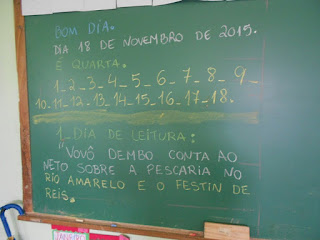 BOM DIA.
DIA 18 DE NOVEMBRO DE 2015.
É QUARTA.
1_2_3_4_5_6_7_8_9_
10_11_12_13_14_15_16_17_18.
1_DIA DE LEITURA:
"VOVÔ DEMBO CONTA AO
NETO SOBRE A PESCARIA NO
RIO AMARELO E O FESTIN DE
REIS.